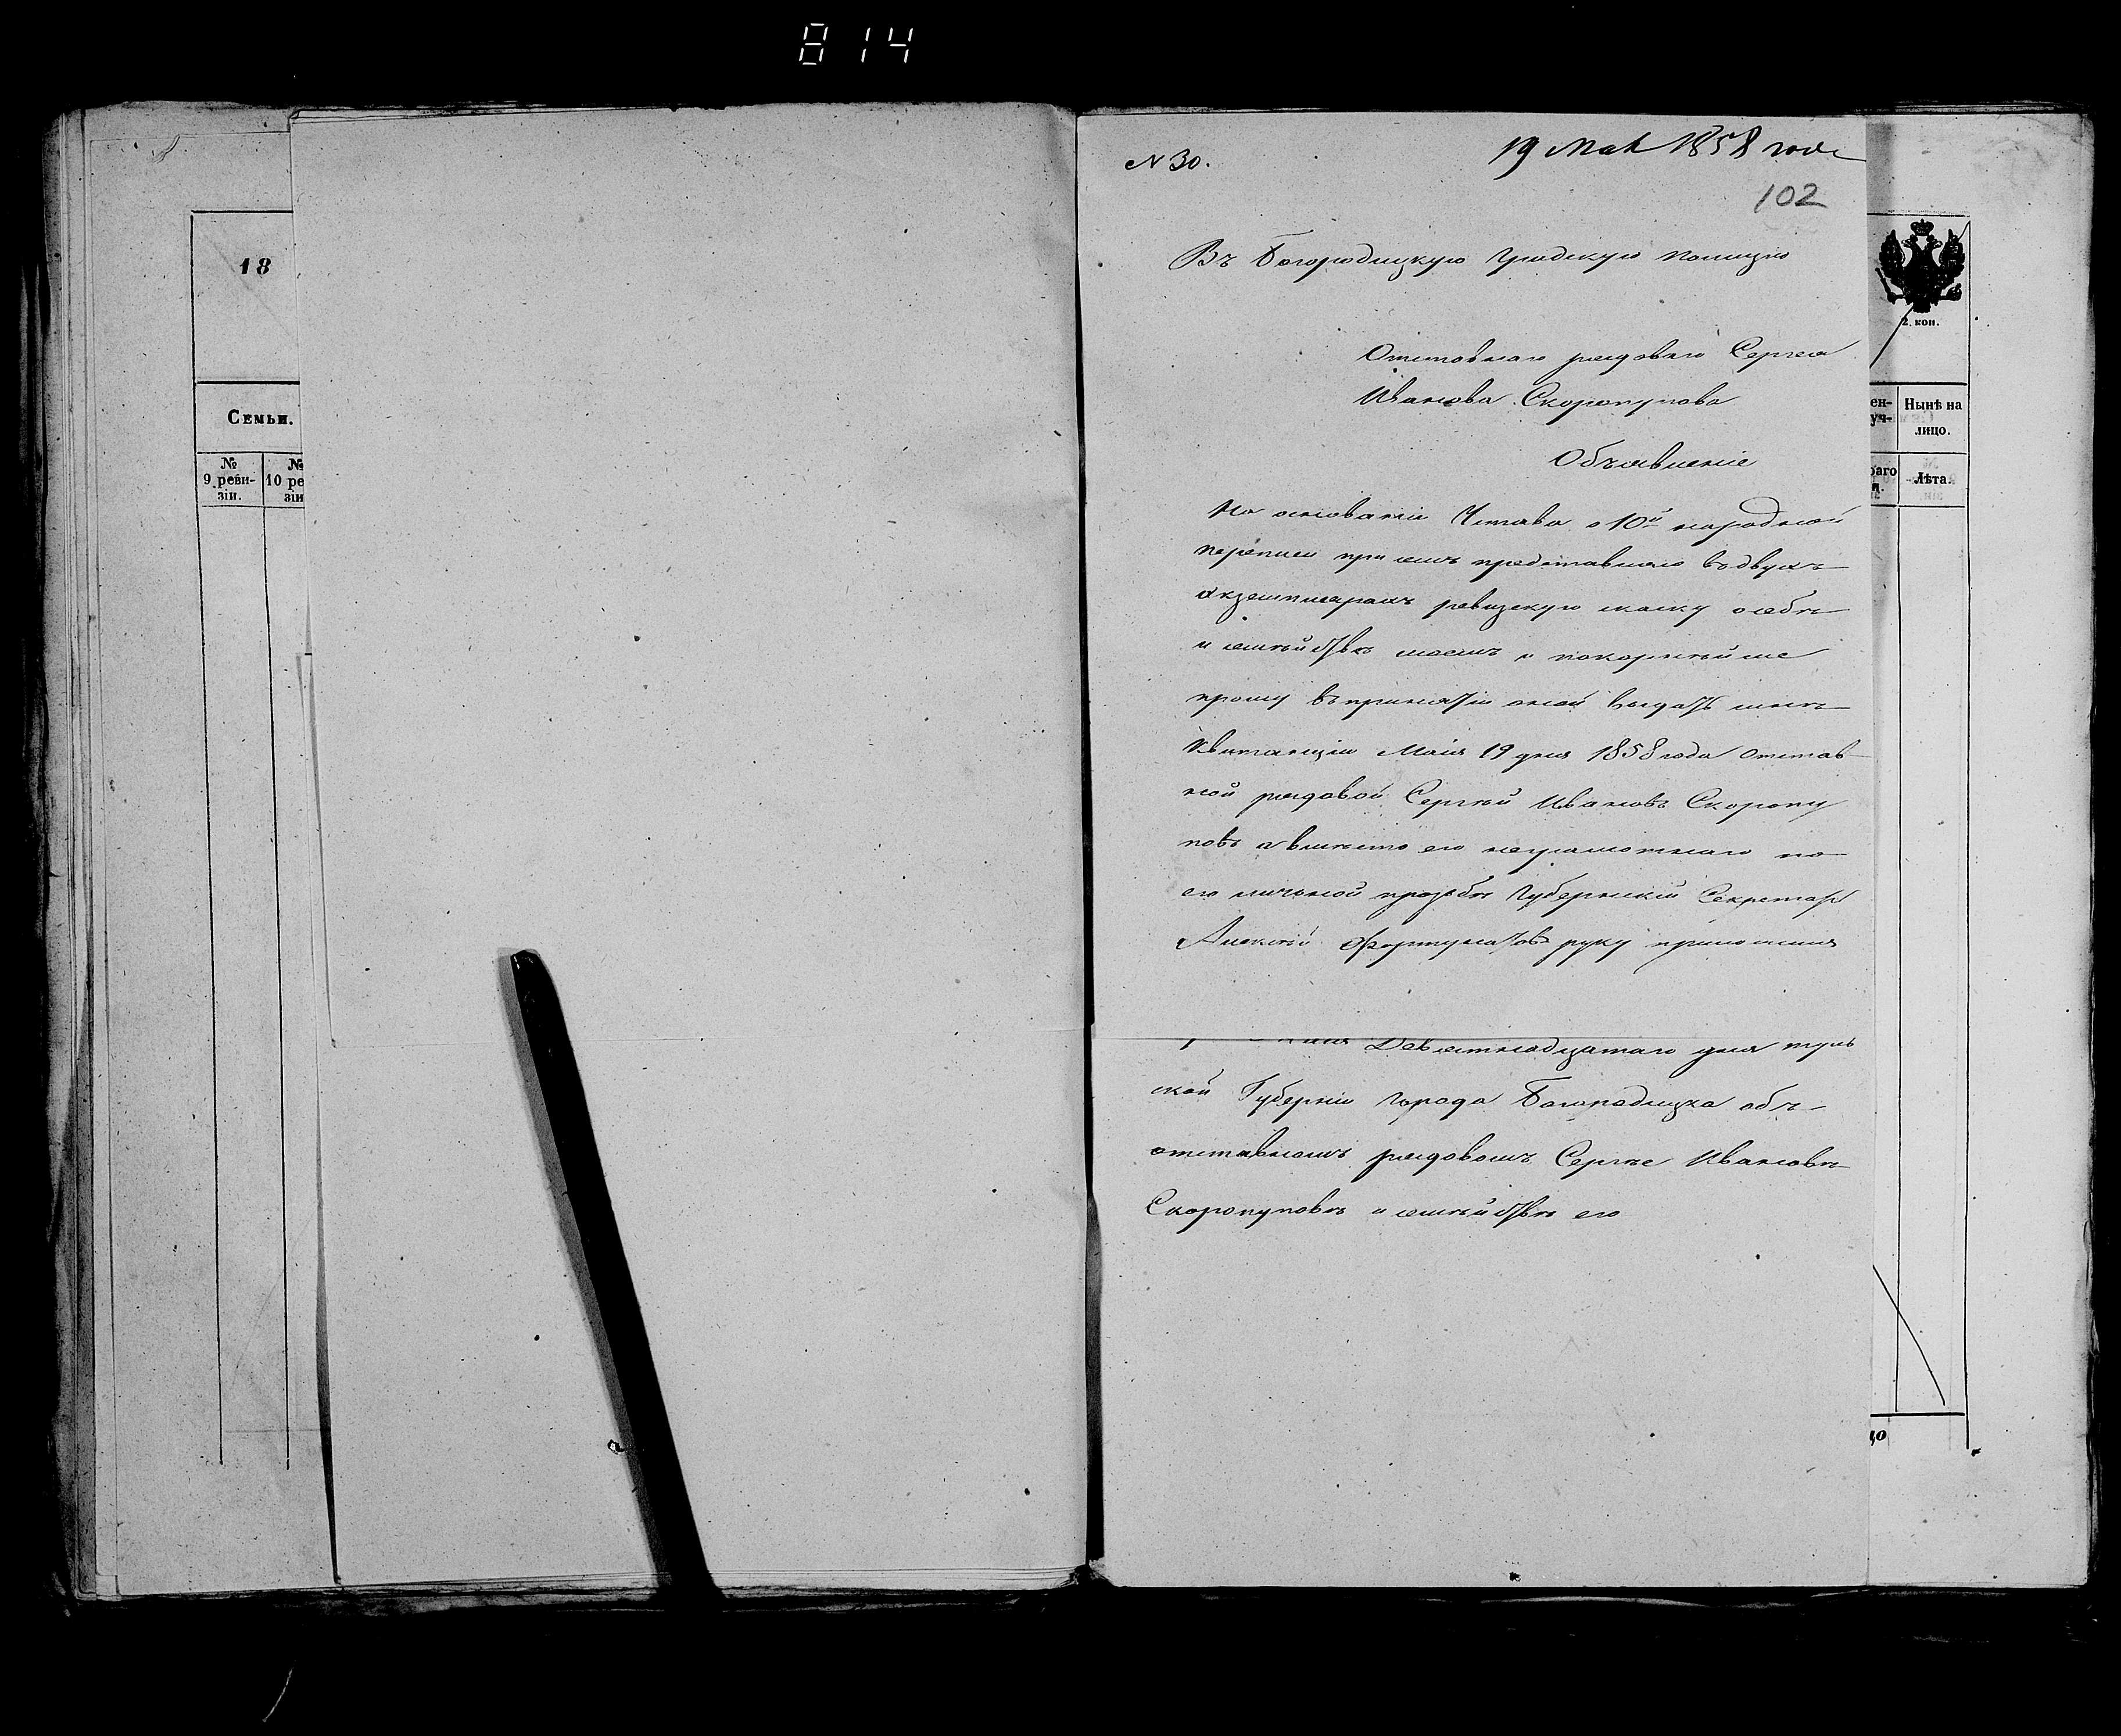 814
18
Семьи.
№ 9 реви-зіи.
№ 10 ре зіи
N 30.
19 Мая 1858 года
102
Въ Богородицкую Градскую полицію
Отставнаго рядоваго Сергея
Иванова Скоропупова
Объявленіе
На основаніи Устава о 10й народной
переписи при семъ представляю въ двухъ
экземплярахъ ревизскую скаску о себѣ
и семѣйствѣ моемъ и покорнѣйше
прошу въ принятіи оной выдать мнѣ
Квитанцію Маія 19 дня 1858 года отстав
ной рядовой Сергѣй Ивановъ Скоропу
повъ а вмѣсто его неграмотнаго по
его личьной прозьбѣ Губернскій Секретарь
Алексѣй Фортунатовъ руку приложилъ
Девятнадцатаго дня туль
ской Губерніи города Богородицка объ
отставномъ рядовомъ Сергѣе Ивановѣ
Скоропуповѣ и семѣйствѣ его
2. коп.
ен-
уч-
Нынѣ на
лицо.
раго
Лѣта.
цо